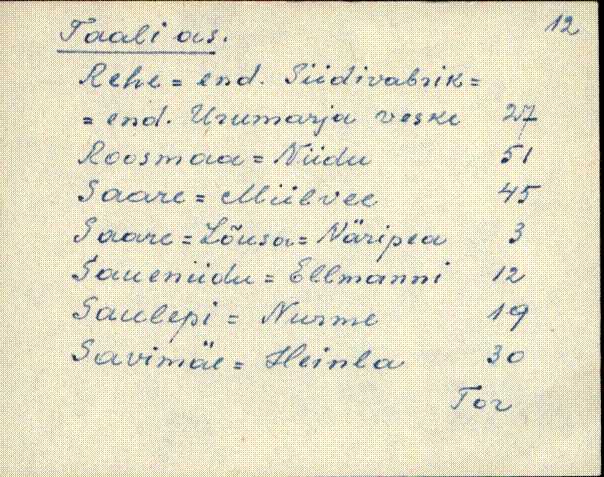 Taali as. 12
Rehe = end. Siidivabrik =
= end. Urumarja veske 27
Roosmaa = Niidu 51
Saare = Miilvee 45
Saare = Lõusa = Näripea 3
Saueniidu = Ellmanni 12
Saulepi = Nurme 19
Savimäe = Heinla 30
Tor